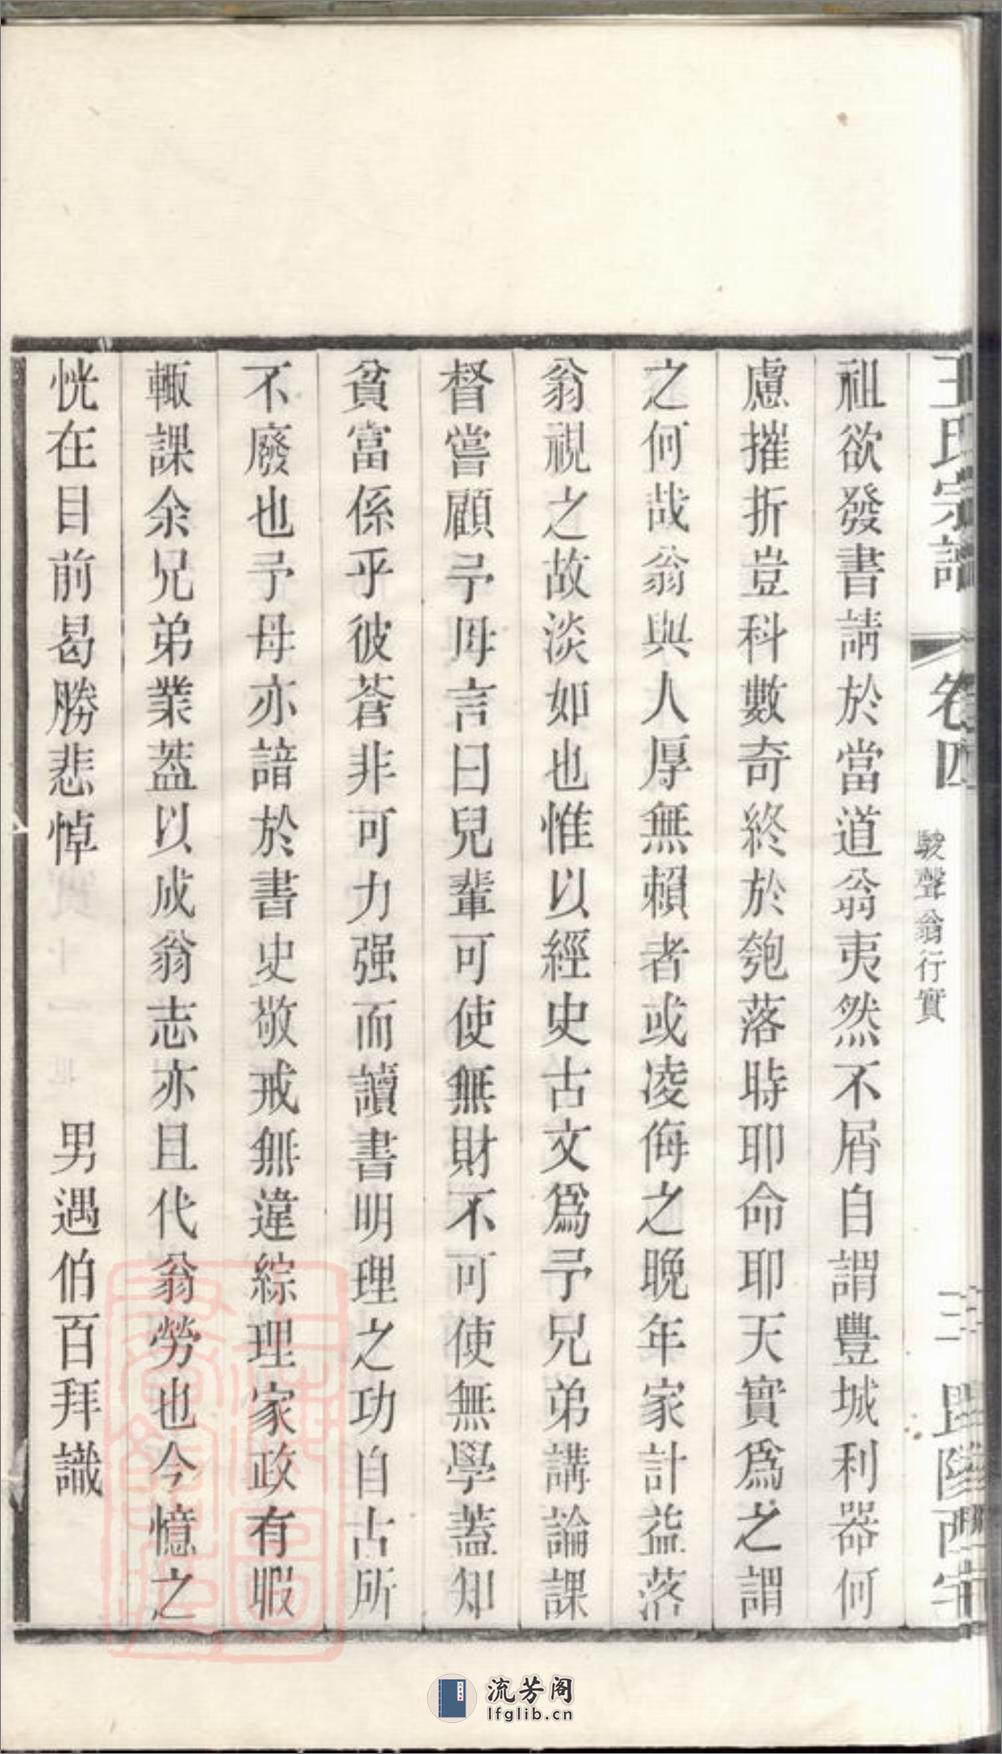 王氏宗譜 卷四 駿聲翁行實 三 毘陵西宅
祖欲發書請於當道翁夷然不屑自謂豐城利器何
慮摧折豈科數奇終於匏落時耶命耶天實爲之謂
之何哉翁與人厚無賴者或凌侮之晚年家計益落
翁視之故淡如也惟以經史古文爲予兄弟講論課
督嘗顧予母言曰兒輩可使無財不可使無學蓋知
貧富係乎彼蒼非可力强而讀書明理之功自古所
不廢也予母亦諳於書史敬戒無違綜理家政有暇
輙課余兄弟業葢以成翁志亦且代翁勞也今憶之
恍在目前曷勝悲悼 男遇伯百拜識
流芳阁
lfglib.cn